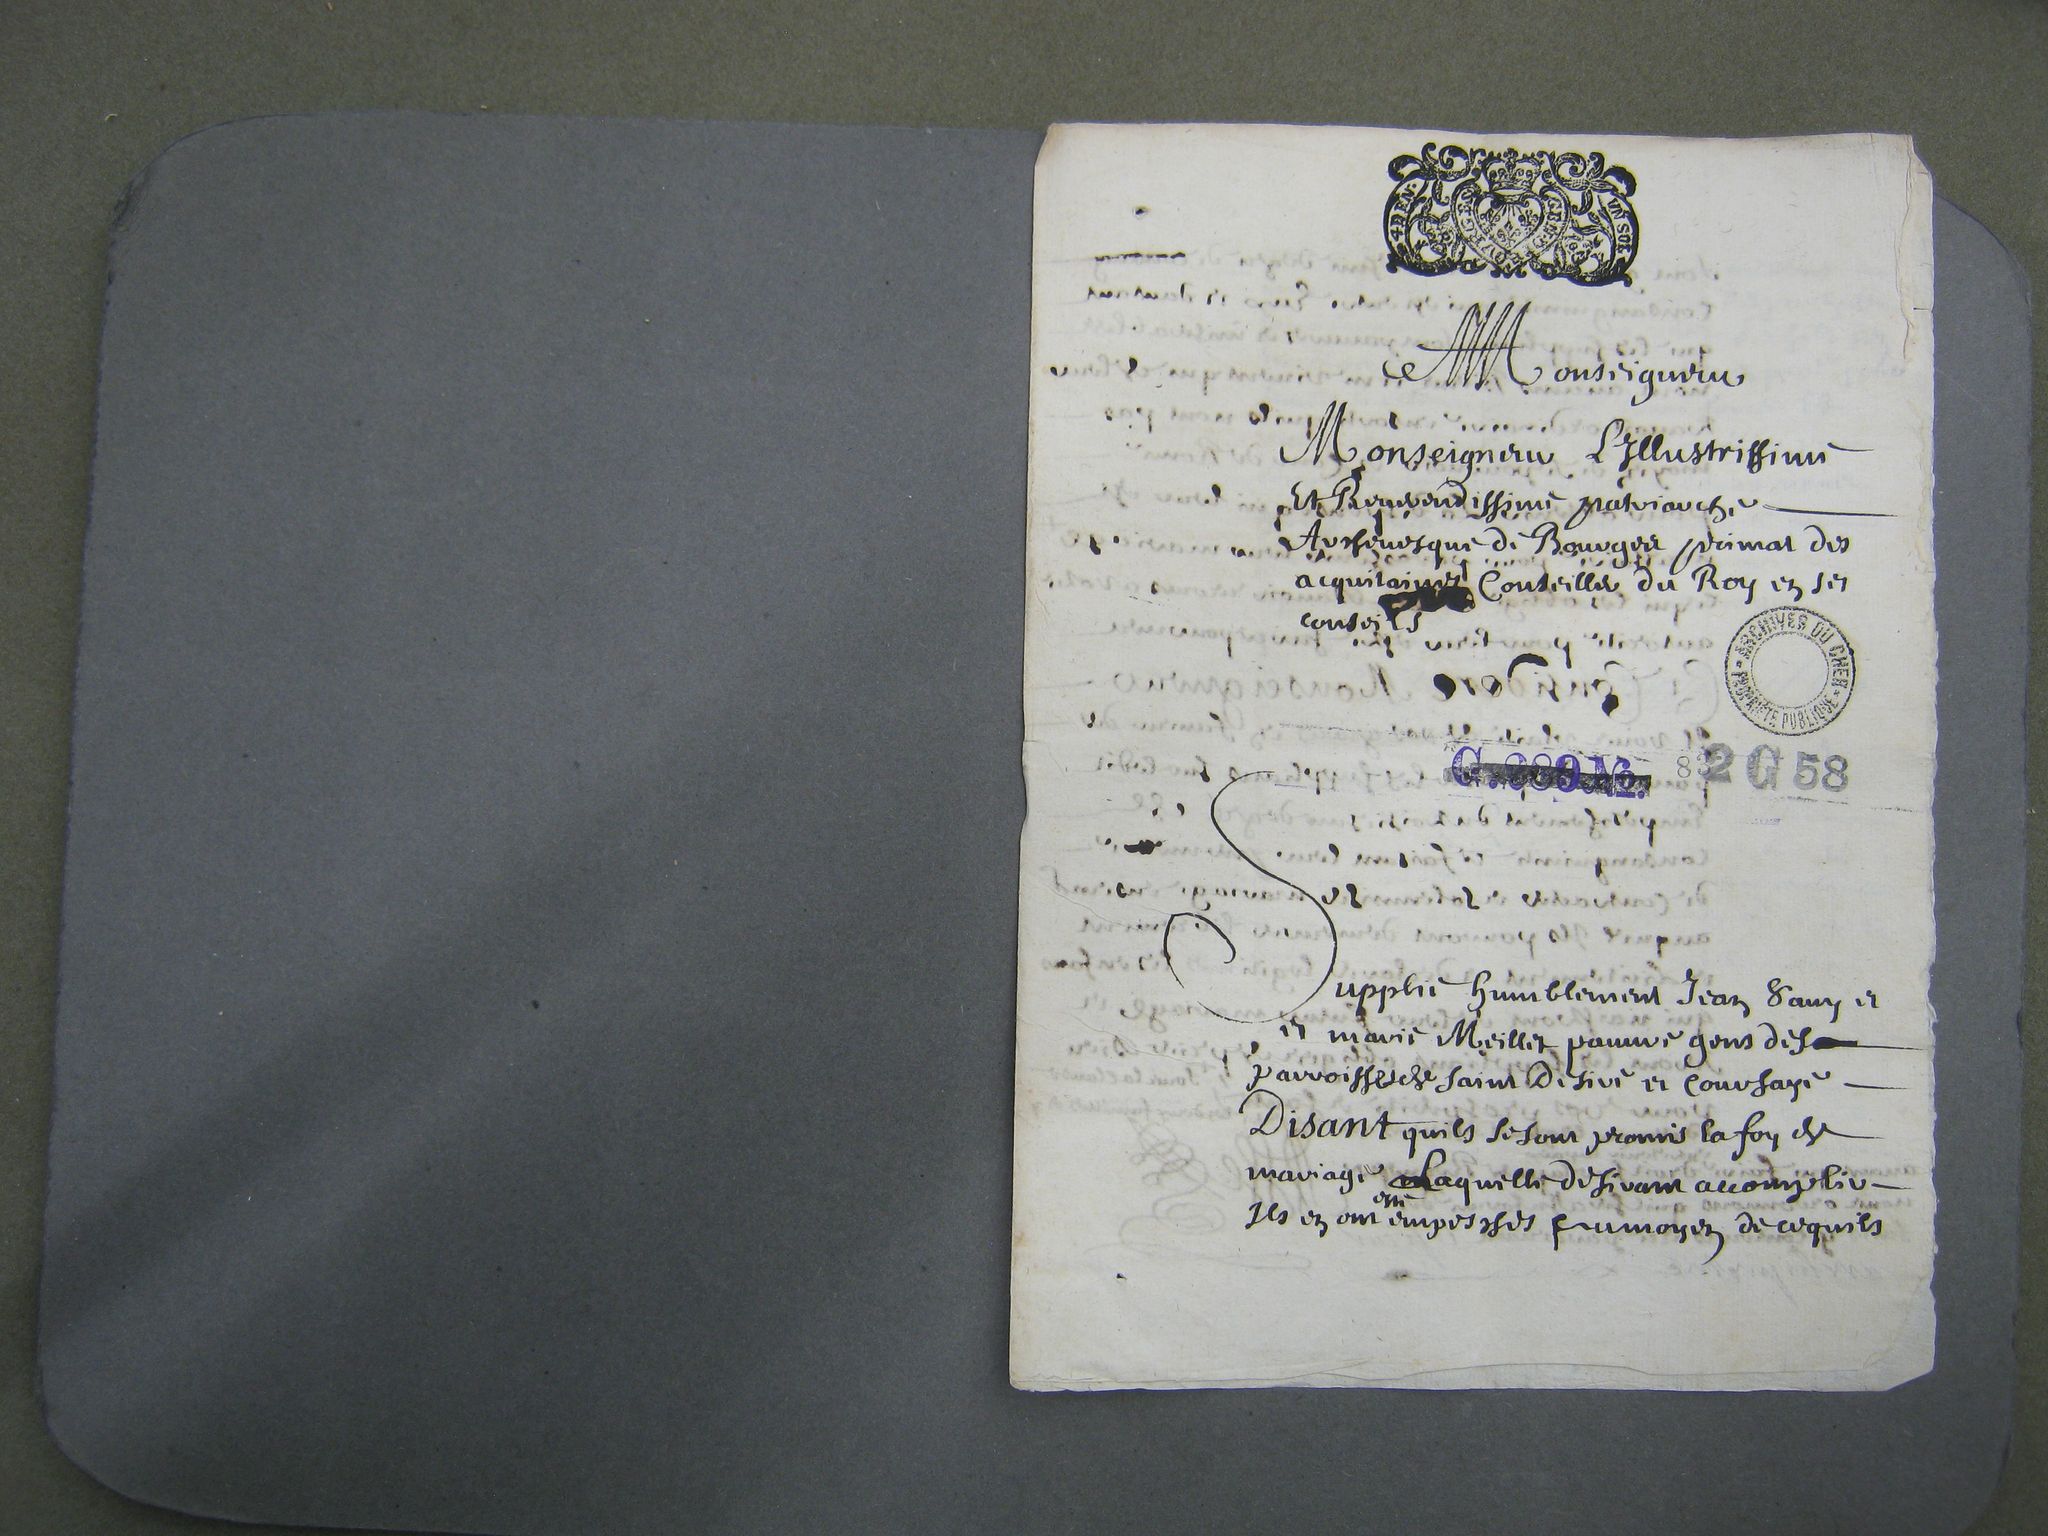 4 DEN.
UN SOL
A Monseigneur
Monseigneur L'Illustrissime
Et Reverendissime patriarche
Archevesque de Bourges primat des
acquitaines Conseiller du Roy en ses
conseils
ARCHIVES DU CHER
PROPRIÉTÉ PUBLIQUE
G. 689 No. 83 2 G 58
Supplie humblement Jean et
et marie Meillet pauvre gens des
parroisses de saint Desiré et Coursage
Disant quils se sont promis la foy de
mariage Laquelle desirant accomplir
Ils en ont esté empesches au moyen de ce quils